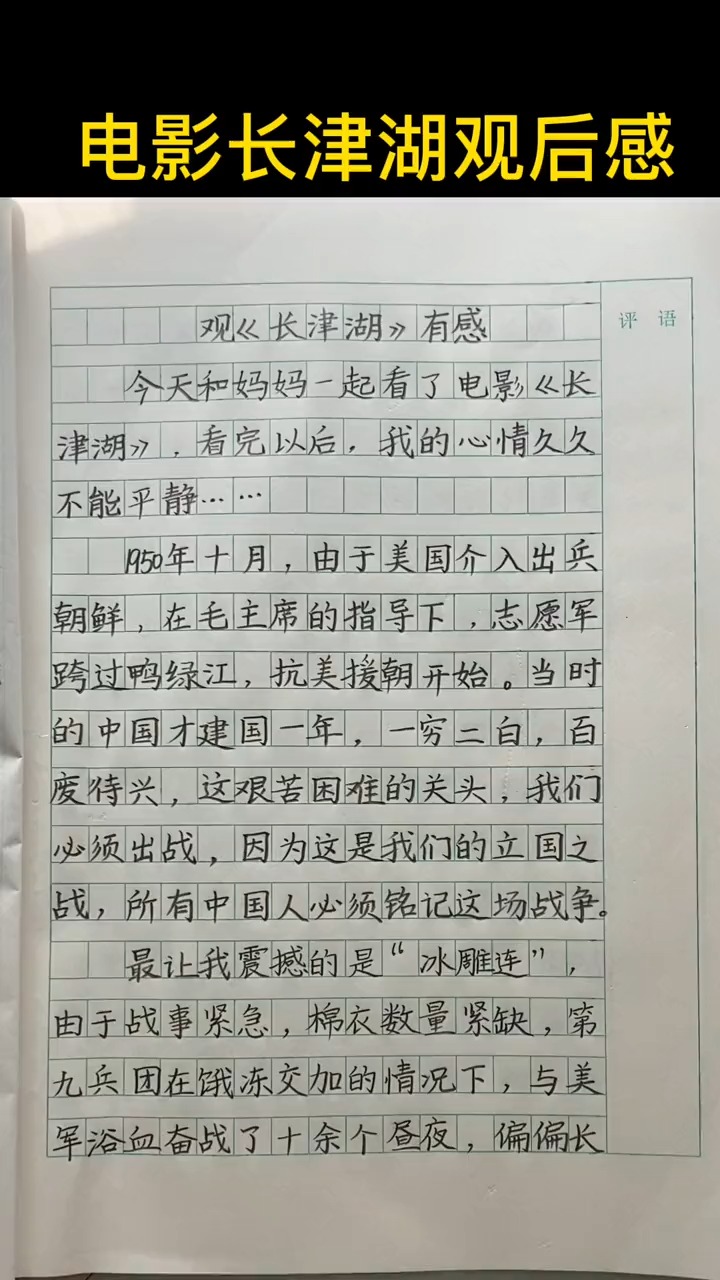 电影长津湖观后感
评语
观《长津湖》有感
今天和妈妈一起看了电影《长
津湖》，看完以后，我的心情久久
不能平静……
1950年十月，由于美国介入出兵
朝鲜，在毛主席的指导下，志愿军
跨过鸭绿江，抗美援朝开始。当时
的中国才建国一年，一穷二白，百
废待兴，这艰苦困难的关头，我们
必须出战，因为这是我们的立国之
战，所有中国人必须铭记这场战争。
最让我震撼的是“冰雕连”，
由于战事紧急，棉衣数量紧缺，第
九兵团在饿冻交加的情况下，与美
军浴血奋战了十余个昼夜，偏偏长